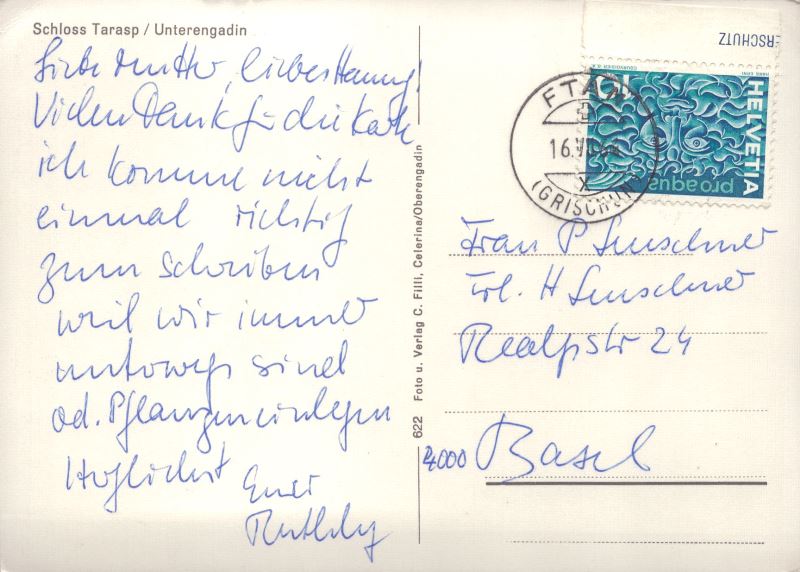 Schloss Tarasp / Unterengadin
Liebe Mutter, liebes Hanny!
Vielen Dank für die Karte
ich komme nicht
einmal richtig
zum schreiben
weil wir immer
unterwegs sind
od. Pflanzen einlegen
Herzlichst
Euer
622 Foto u. Verlag C. Filli, Celerina/Oberengadin
ERSCHUTZ
HELVETIA
pro aqua
HANS ERNI
COURVOISIER S.A.
FTAN
16.VII.
(GRISCHUN)
Frau P Leuschner
Frl. H Leuschner
Realpstr 24
4000 Basel